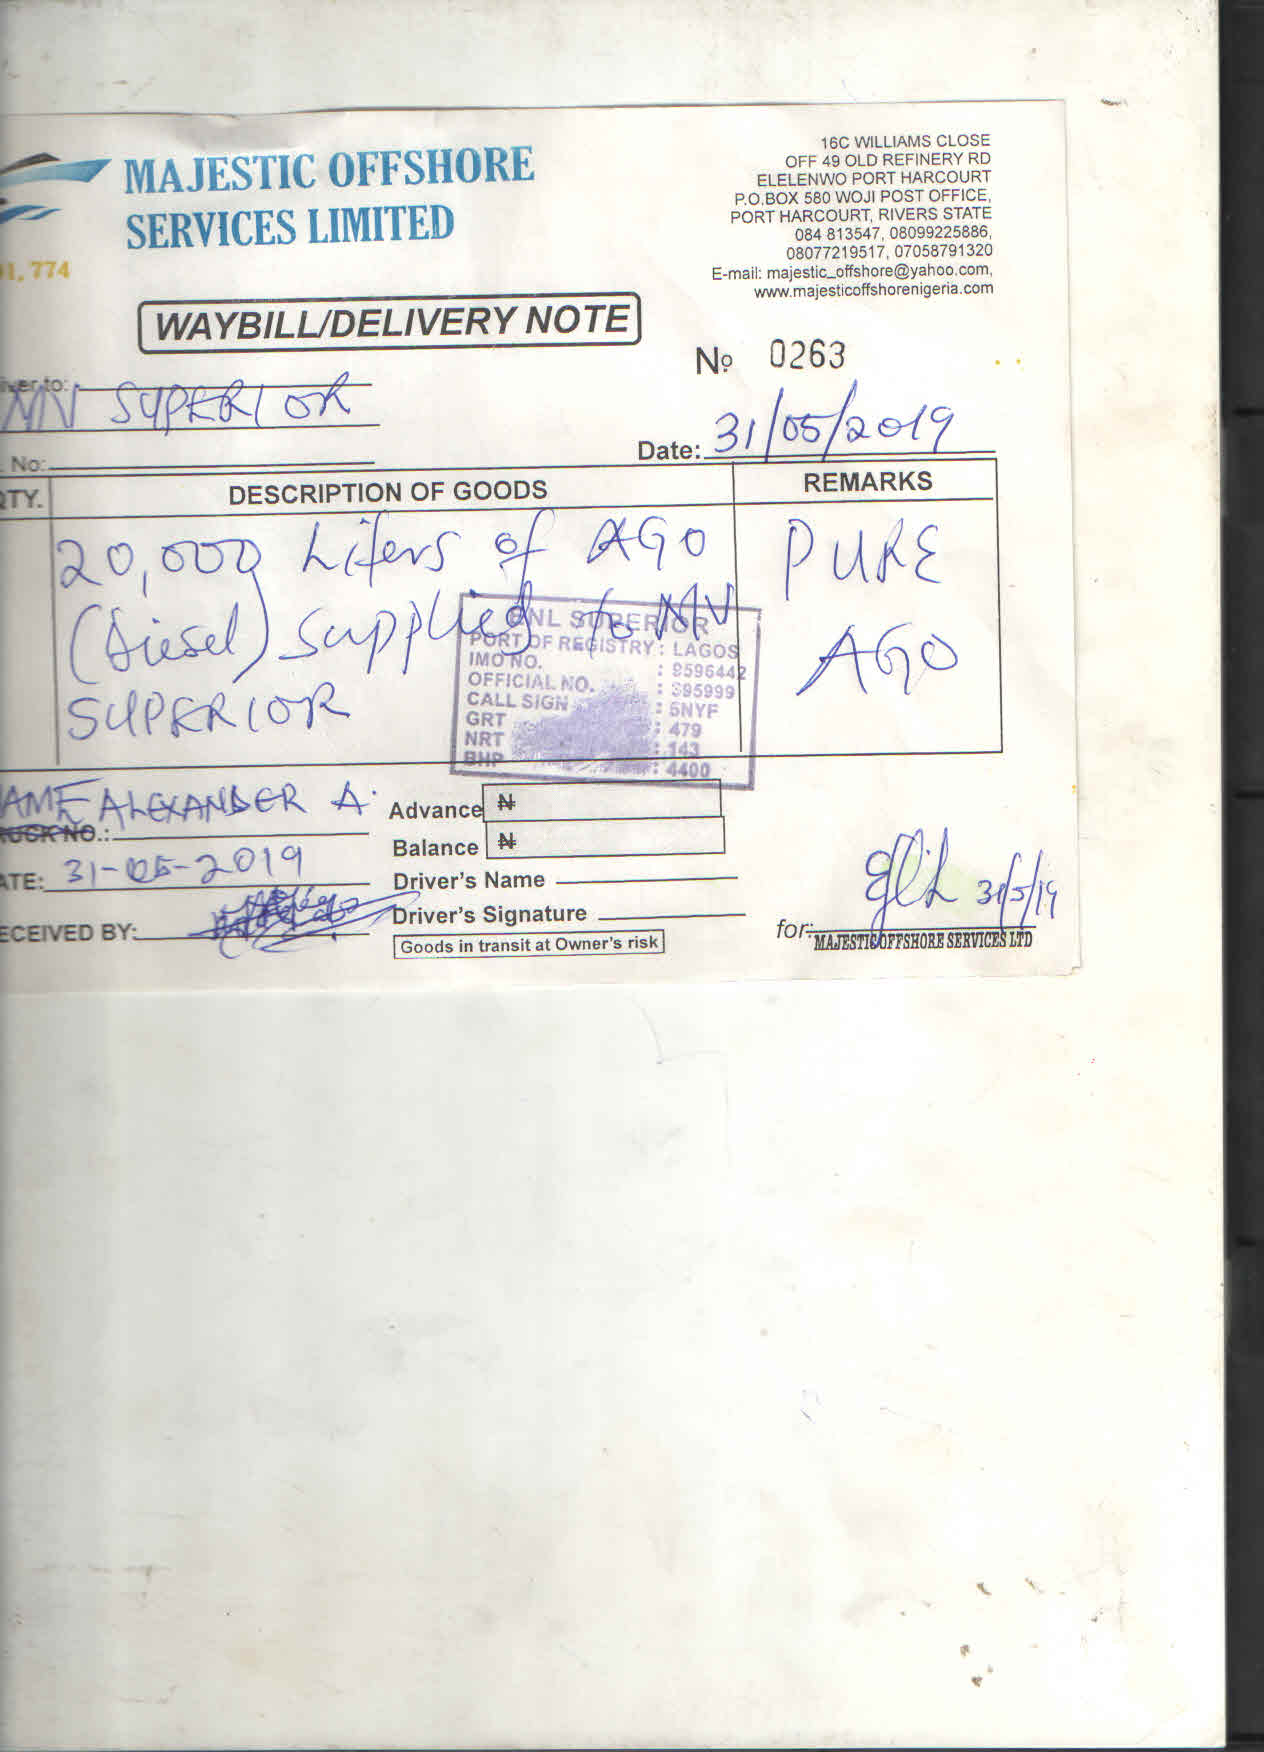 MAJESTIC OFFSHORE
SERVICES LIMITED
1, 774
16C WILLIAMS CLOSE
OFF 49 OLD REFINERY RD
ELELENWO PORT HARCOURT
P.O.BOX 580 WOJI POST OFFICE,
PORT HARCOURT, RIVERS STATE
084 813547, 08099225886,
08077219517, 07058791320
E-mail: majestic_offshore@yahoo.com,
www.majesticoffshorenigeria.com
WAYBILL/DELIVERY NOTE
No 0263
iver to:
MV SUPERIOR
No:
Date: 31/05/2019
QTY. DESCRIPTION OF GOODS REMARKS
20,000 Liters of AGO PURE
(Diesel) supplied to MV AGO
SUPERIOR
ENL SUPERIOR
PORT OF REGISTRY : LAGOS
IMO NO. : 9596442
OFFICIAL NO. : 395999
CALL SIGN : 5NYF
GRT : 479
NRT : 143
BHP : 4400
AME ALEXANDER A.
UCK NO.:
ATE: 31-05-2019
ECEIVED BY:
Advance ₦
Balance ₦
Driver's Name
Driver's Signature
Goods in transit at Owner's risk
31/5/19
for:
MAJESTIC OFFSHORE SERVICES LTD